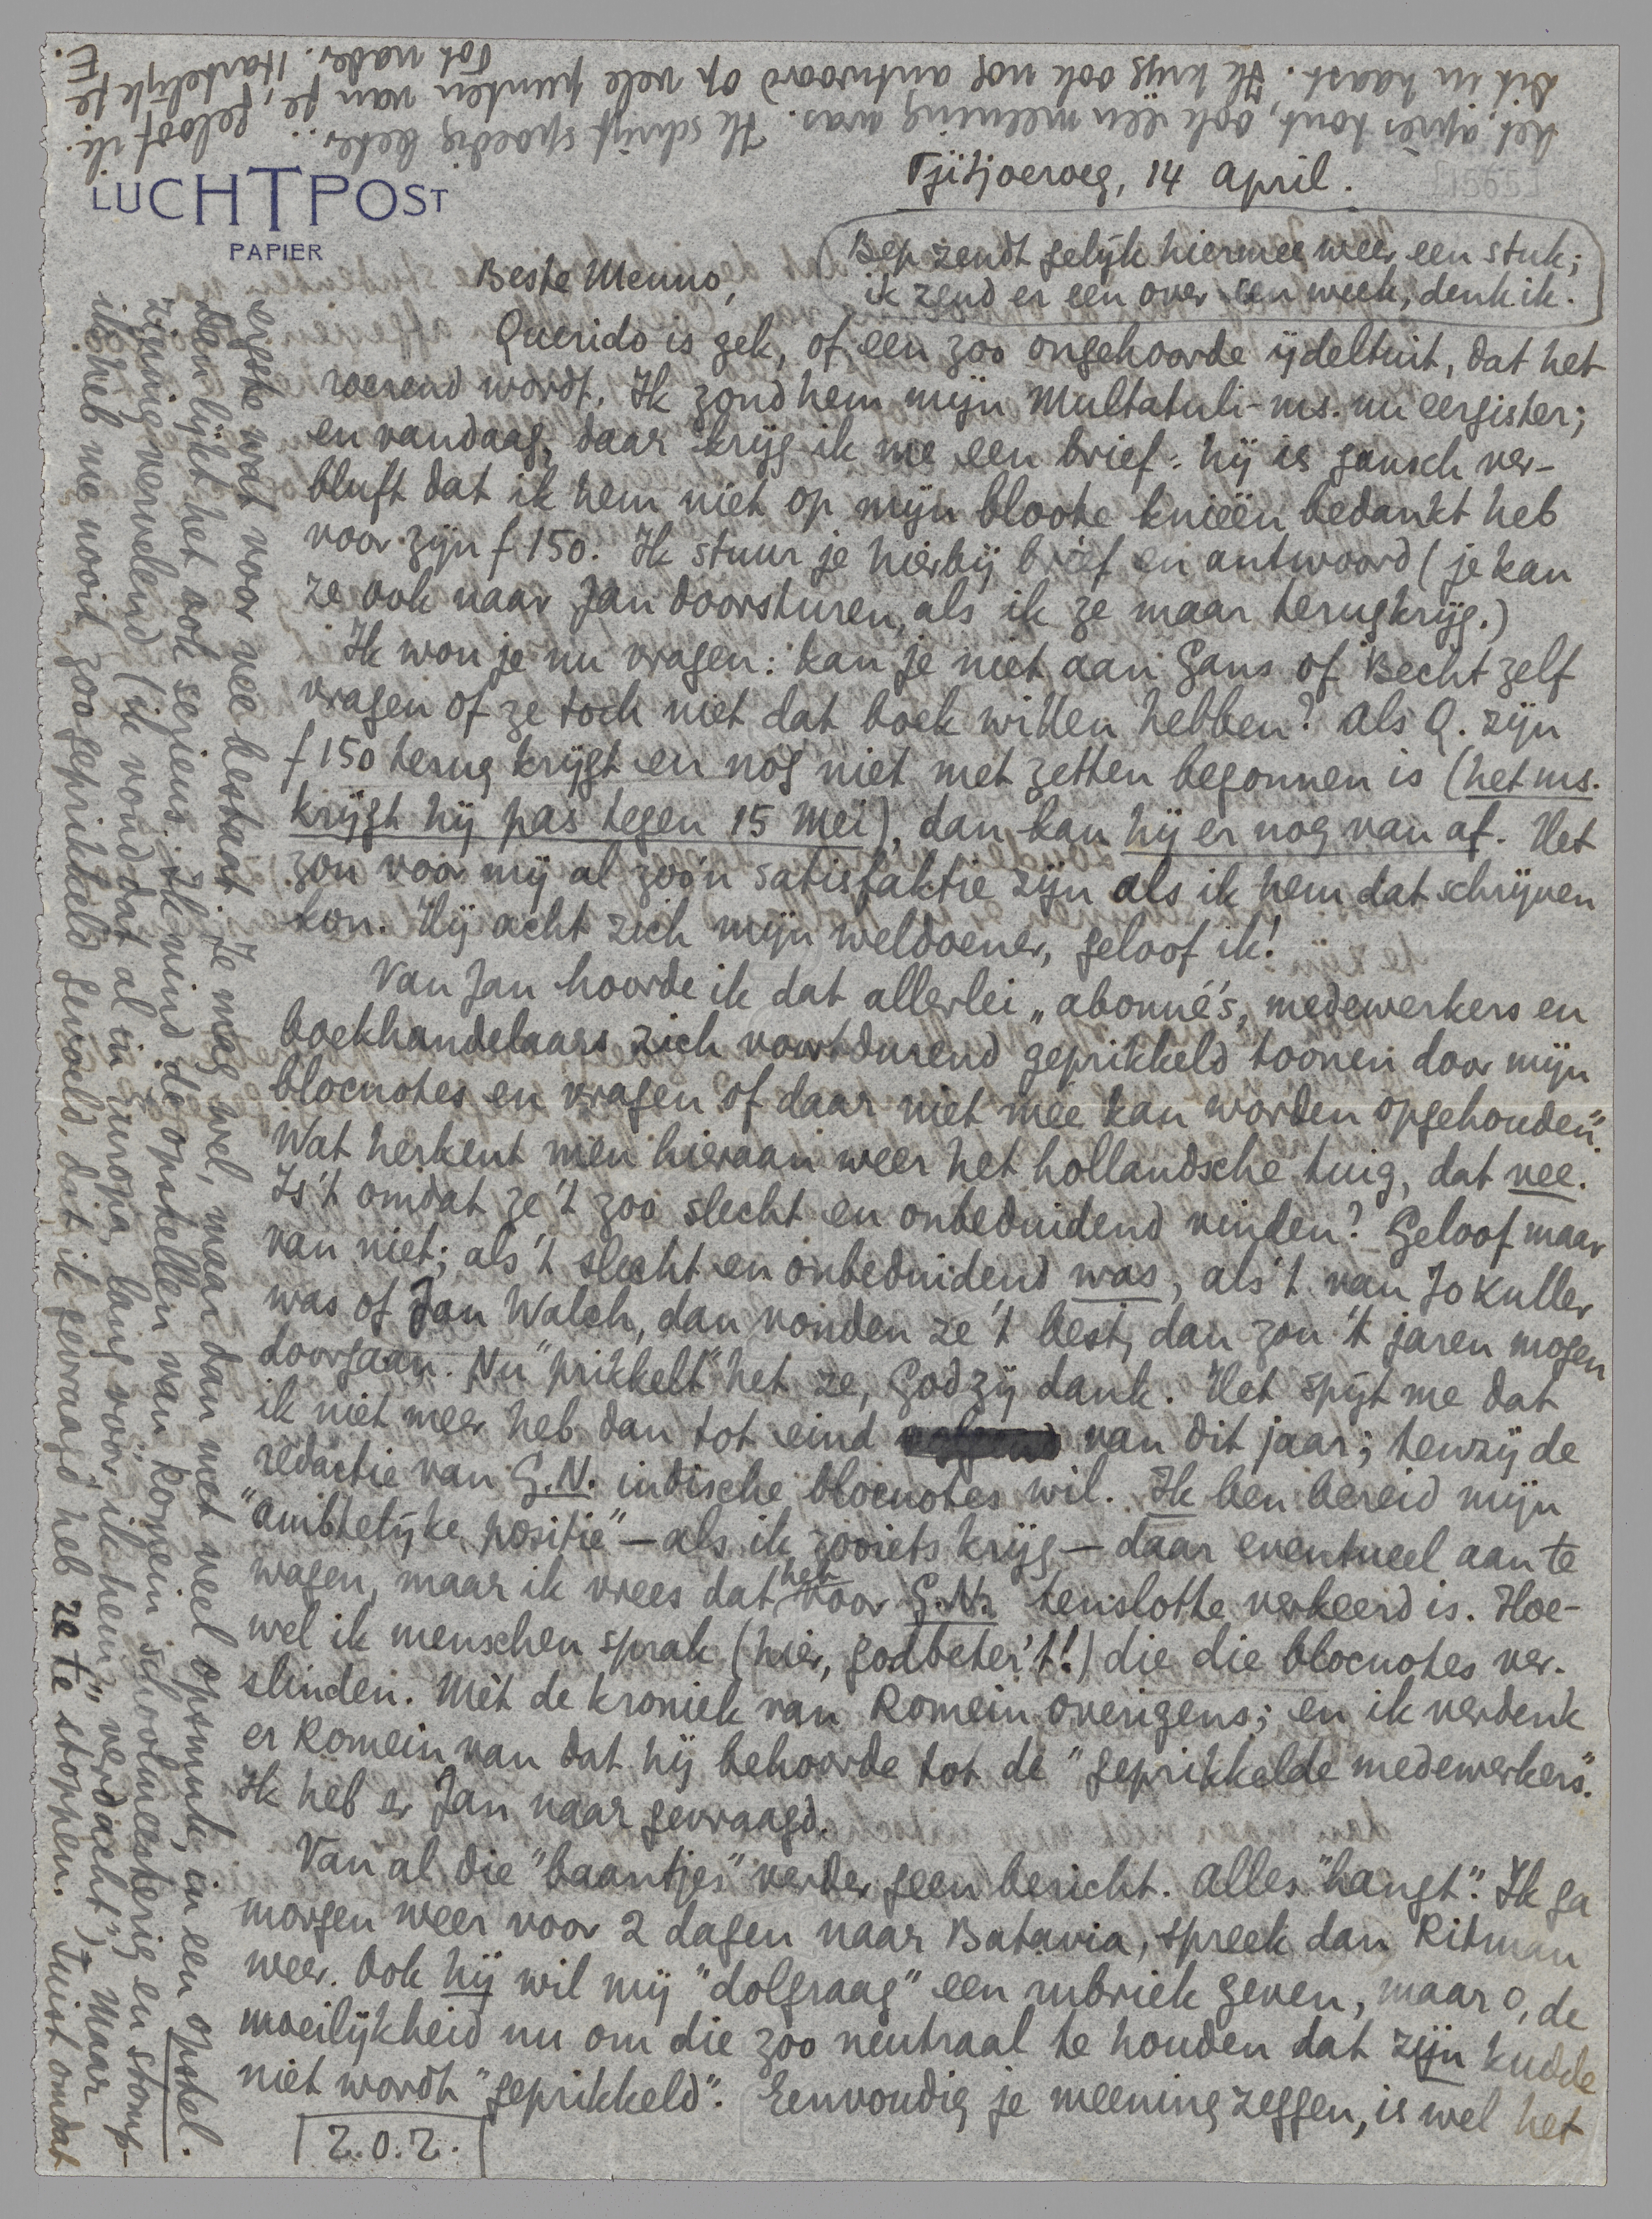 LUCHTPOST
PAPIER
Tjitjoeroeg, 14 April.
Bep zendt gelijk hiermee weer een stuk;
ik zend er een over een week, denk ik.
Beste Menno,
Querido is gek, of een zoo ongehoorde ijdeltuit, dat het
roerend wordt. Ik zond hem mijn Multatuli-ms. nu eergister;
en vandaag, daar krijg ik me een brief: hij is gansch ver-
bluft dat ik hem niet op mijn bloote knieën bedankt heb
voor zijn f 150. Ik stuur je hierbij brief en antwoord (je kan
ze ook naar Jan doorsturen, als ik ze maar terugkrijg.)
Ik wou je nu vragen: kan je niet aan Gans of Becht zelf
vragen of ze toch niet dat boek willen hebben? Als Q. zijn
f 150 terug krijgt en nog niet met zetten begonnen is (het ms.
krijgt hij pas tegen 15 Mei), dan kan hij er nog van af. Het
zou voor mij al zoo'n satisfaktie zijn als ik hem dat schrijven
kon. Hij acht zich mijn weldoener, geloof ik!
Van Jan hoorde ik dat allerlei „abonné's, medewerkers en
boekhandelaars zich voortdurend geprikkeld toonen door mijn
blocnotes en vragen of daar niet mee kan worden opgehouden".
Wat herkent men hieraan weer het hollandsche tuig, dat vee.
Is 't omdat ze 't zoo slecht en onbeduidend vinden? Geloof maar
van niet; als 't slecht en onbeduidend was, als 't van Jo Kuller
was of Jan Walch, dan vonden ze 't best, dan zou 't jaren mogen
doorgaan. Nu "prikkelt" het ze, God zij dank. Het spijt me dat
ik niet meer heb dan tot eind van dit jaar; tenzij de
redactie van G.N. indische blocnotes wil. Ik ben bereid mijn
"ambtelijke positie" – als ik zooiets krijg – daar eventueel aan te
wagen, maar ik vrees dat het voor G.N. tenslotte verkeerd is. Hoe-
wel ik menschen sprak (hier, godbeter't!) die die blocnotes ver-
slinden. Mèt de kroniek van Romein overigens; en ik verdenk
er Romein van dat hij behoorde tot de "geprikkelde medewerkers".
Ik heb er Jan naar gevraagd.
Van al die "baantjes" verder geen bericht. Alles "hangt". Ik ga
morgen weer voor 2 dagen naar Batavia, spreek dan Ritman
weer. Ook hij wil mij "dolgraag" een rubriek geven, maar o, de
moeilijkheid nu om die zoo neutraal te houden dat zijn kudde
niet wordt "geprikkeld". Eenvoudig je meening zeggen, is wel het
Z.O.Z.
ergste wat voor vee bestaat. Je mag wel, maar dan met veel opsmuk, in een opstel.
Dan lijkt het ook serieus. Ik vind de opstellen van Romein schoolmeesterig en stomp-
zinnig vervelend (ik vond dat al in Europa, lang vóór ik hem "verdacht"). Maar
ik heb me nooit zoo geprikkeld gevoeld, dat ik gevraagd heb ze te stoppen. Juist omdat
het, après tout, ook één meening was. Ik schrijf spoedig beter... geloof ik.
Dit in haast. Ik krijg ook nog antwoord op vele punten van je,
Tot nader. Hartelijk je
E.